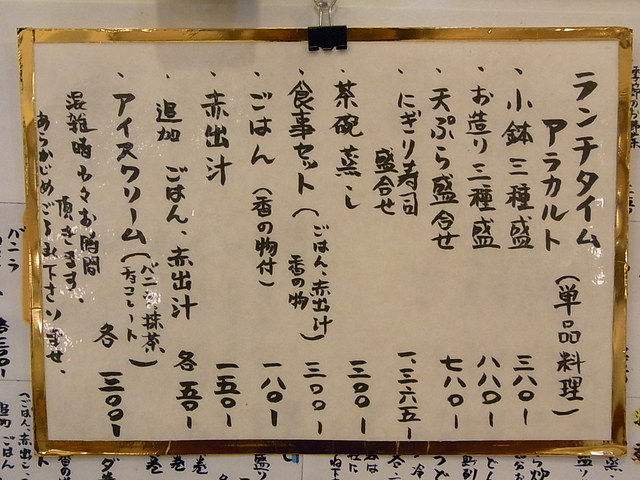 ランチタイム
アラカルト
（単品料理）
・小鉢三種盛 三八〇ー
・お造り三種盛 八八〇ー
・天ぷら盛合せ 七八〇ー
・にぎり寿司盛合せ 一、三六五ー
・茶碗蒸し 三〇〇ー
・食事セット（ごはん、赤出汁 香の物） 三〇〇ー
・ごはん（香の物付） 一八〇ー
・赤出汁 一五〇ー
・追加 ごはん、赤出汁 各 五〇ー
・アイスクリーム（バニラ・抹茶、チョコレート） 各 三〇〇ー
混雑時少々お時間
頂きます。
あらかじめご了承下さいませ。
バニラ